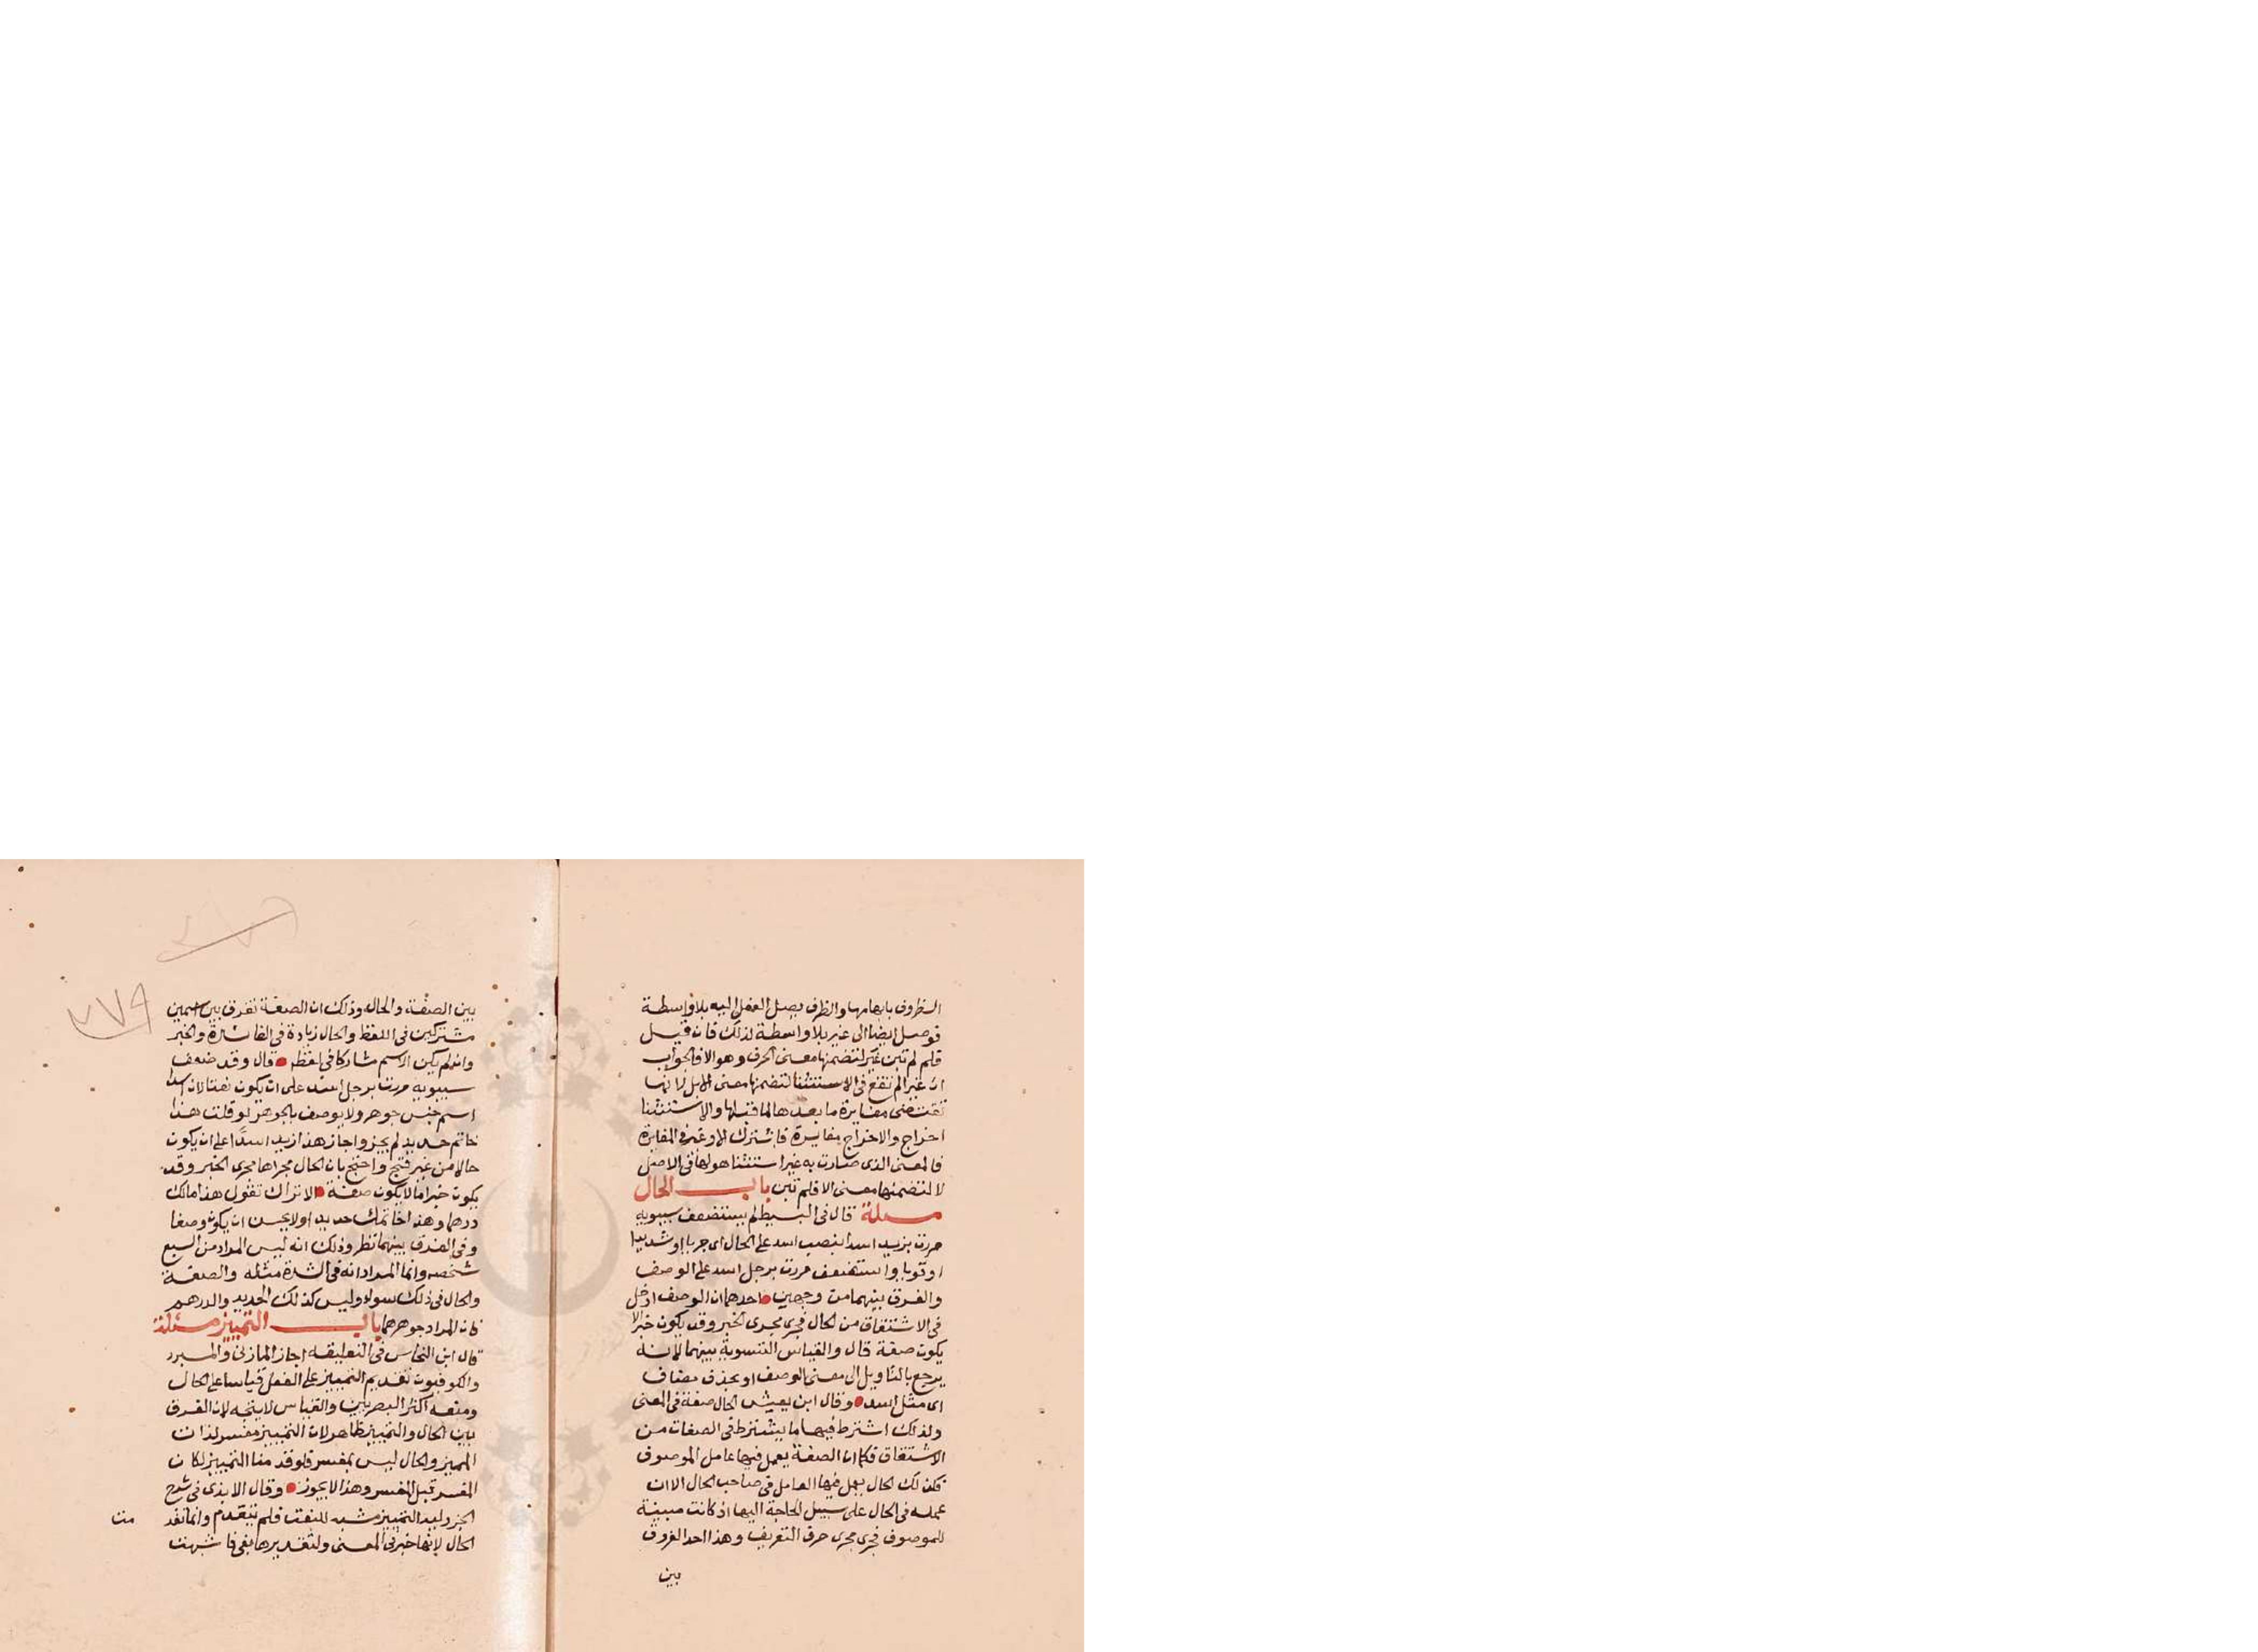 الظروف بابهامها والظرف يصل الفعل اليه بلا واسطة
فوصل ايضا الى غير بلا واسطة لذلك فان قيل
فلم لم تبن غير لتضمنها معنى الحرف وهو الا فالجواب
ان غير الم تقع فى الاستثنا لتضمنها معنى الا بل لانها
تقتضى مغايرة ما بعدها لما قبلها والاستثنا
اخراج والاخراج مغايرة فاشترك الا وغير فى المغايرة
فالمعنى الذى صارت به غير استثنا هو لها فى الاصل
لا لتضمنها معنى الا فلم تبن باب الحال
مسلة قال فى البسيط لم يستضعف سيبويه
مررت بزيد اسدا بنصب اسد على الحال اى جريا او شديدا
او قويا واستضعف مررت برجل اسد على الوصف
والفرق بينهما من وجهين احدهما ان الوصف ادخل
فى الاشتقاق من الحال فجرى مجرى الخبر وقد يكون خبرا لا
يكون صفة قال والقياس التسوية بينهما لانه
يرجع بالتاويل الى معنى الوصف او بحذف مضاف
اى مثل اسد وقال ابن يعيش الحال صفة فى المعنى
ولذلك اشترط فيها ما يشترط فى الصفات من
الاشتقاق فكما ان الصفة يعمل فيها عامل الموصوف
فكذلك الحال يعمل فيها العامل فى صاحب الحال الا ان
عمله فى الحال على سبيل الحاجة اليها اذ كانت مبينة
للموصوف فجرى مجرى حرف التعريف وهذا احد الفروق
بين
بين الصفة والحال وذلك ان الصفة تفرق بين اسمين
مشتركين فى اللفظ والحال زيادة فى الفائدة والخبر
وان لم يكن الاسم مشاركا فى لفظه قال وقد ضعف
سيبويه مررت برجل اسد على ان يكون نعتا لان اسدا
اسم جنس جوهر ولا يوصف بالجوهر لو قلت هذا
خاتم حديد لم يجز واجاز هذا زيد اسدًا على ان يكون
حالا من غير قبح واحتج بان الحال مجراها مجرى الخبر وقد
يكون خبرا مالا يكون صفة الا تراك تقول هذا مالك
درهما وهذا خاتمك حديدا ولا يحسن ان يكون وصفا
وفى الفرق بينهما نظر وذلك انه ليس المراد من السبع
شخصه وانما المراد انه فى الشدة مثله والصفة
والحال فى ذلك سواء وليس كذلك الحديد والدرهم
فان المراد جوهرهما باب التمييز مسئلة
قال ابن النحاس فى التعليقه اجاز المازنى والمبرد
والكوفيون تقديم التمييز على الفعل قياسا على الحال
ومنعه اكثر البصريين والقياس لا يتجه لان الفرق
بين الحال والتمييز ظاهر لان التمييز مفسر لذات
المميز والحال ليس بمفسر فلو قدمنا التمييز لكان
المفسر قبل المفسر وهذا لا يجوز وقال الابذى فى شرح
الجزوليه التمييز مشبه للنعت فلم يتقدم وانما تقد مت
الحال لانها خبر فى المعنى ولتقديرها بفى فاشبهت
٧٧٩